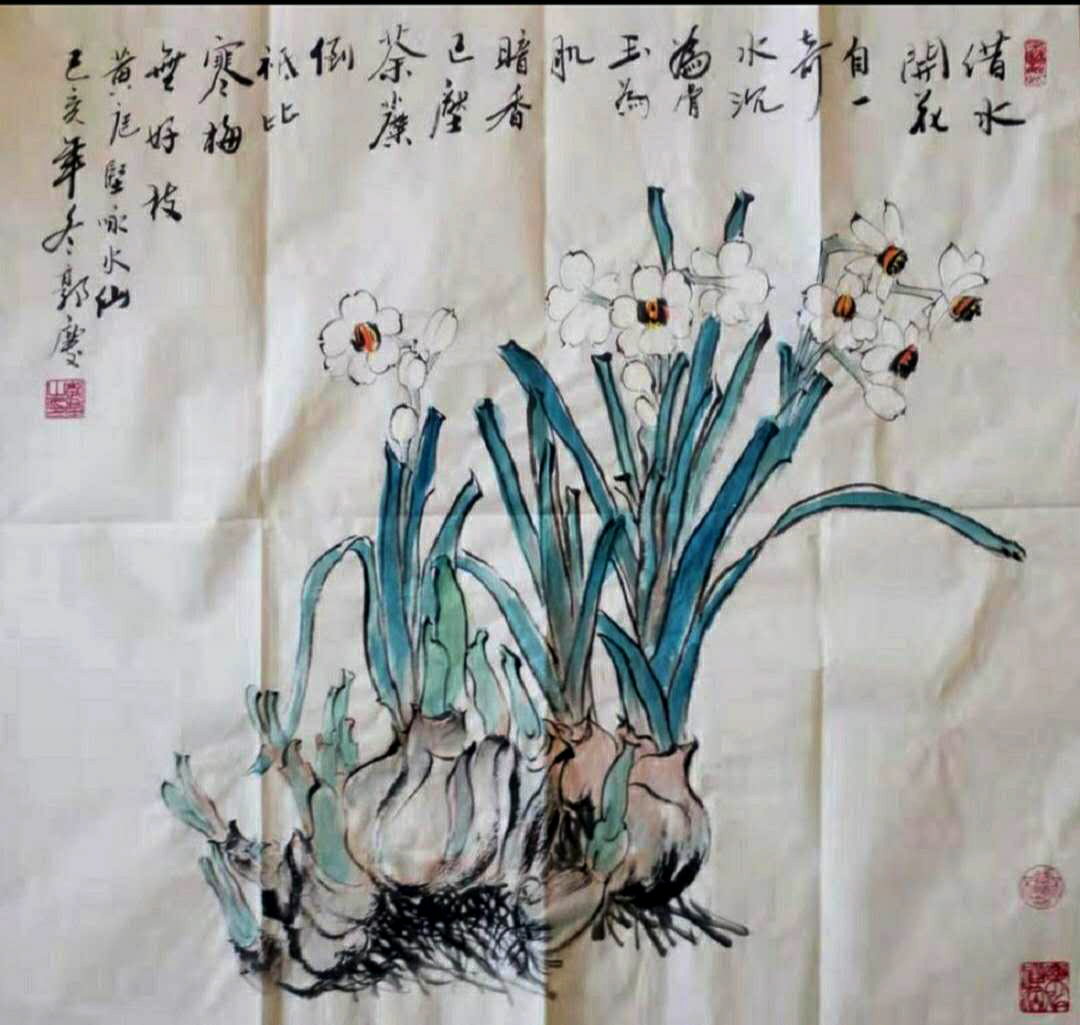 借水
開花
自一
奇
水沉
為骨
玉為
肌
暗香
已壓
荼蘼
倒
祗比
寒梅
無好枝
黄庭堅咏水仙
己亥年冬郭慶